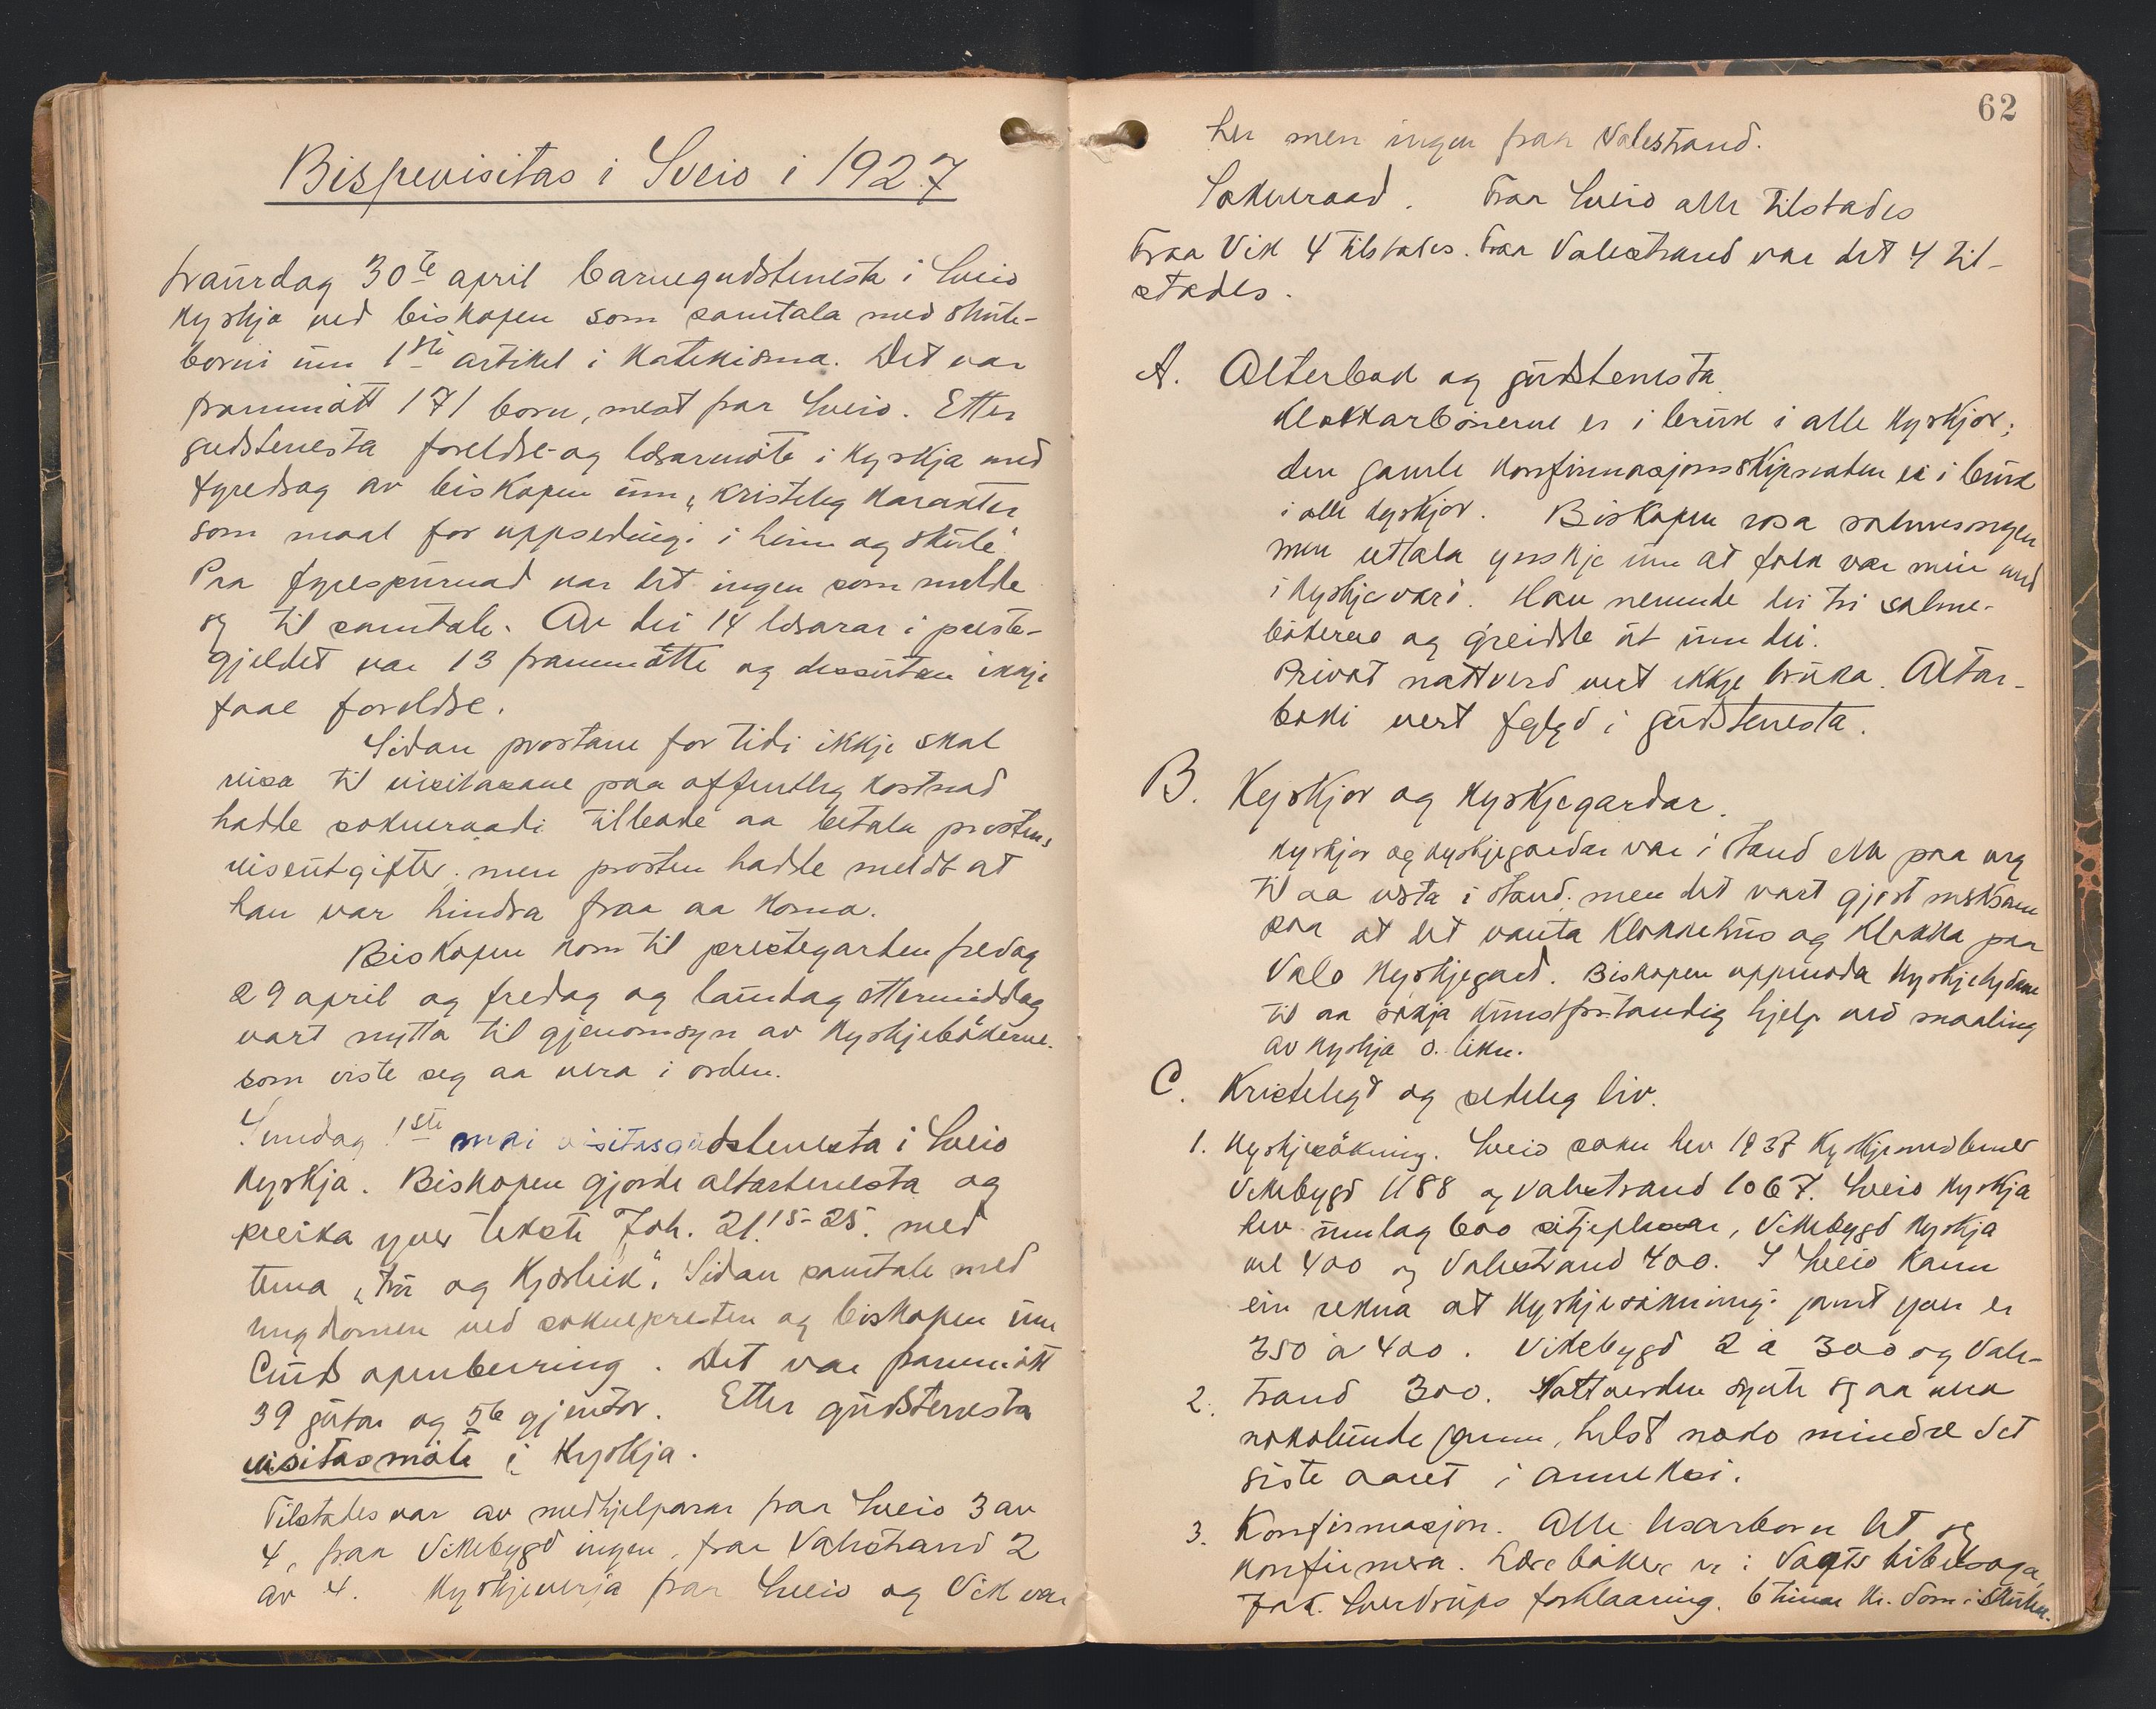 Bispevisitas i Sveio i 1927
Laurdag 30te april barnegudstenesta i Sveio
kyrkja ved biskopen som samtala med skule-
borni um 1ste artikel i katekisma. Det var
frammött 171 born, mest fraa Sveio. Etter
gudstenesta foreldre- og lærarmöte i kyrkja med
fyredrag av biskopen um „Kristeleg karakter
som maal for uppsedingi i heim og skule".
Paa fyrespurnad var det ingen som melde
seg til samtale. Av dei 14 lærarar i preste-
gjeldet var 13 frammötte og dessutan ikkje
faae foreldre.
Sidan prostane for tidi ikkje skal
reisa til visitasane paa offentleg kostnad
hadde sokneraadi tilbode aa betala prostens
reiseutgifter, men prosten hadde meldt at
han var hindra fraa aa koma.
Biskopen kom til prestegarden fredag
29 april og fredag og laurdag ettermiddag
vart nytta til gjenomsyn av kyrkjebökerne.
som viste seg aa vera i orden.
Sundag 1ste mai visitasgudstenesta i Sveio
kyrkja. Biskopen gjorde altartenesta og
preika yver teksti Joh. 21.15-25. med
tema „tru og kjærleik". Sidan samtale med
ungdomen ved soknepresten og biskopen um
Guds openberring. Det var frammött
39 gutar og 56 gjentor. Etter gudstenesta
visitasmöte i kyrkja.
Tilstades var av medhjelparar fraa Sveio 3 av
4, fraa Vikebygd ingen, fraa Valestrand 2
av 4. Kyrkjeverja fraa Sveio og Vik var
62
her men ingen fraa Valestrand.
Sokneraad. Fraa Sveio alle tilstades
Fraa Vik 4 tilstades. Fraa Valestrand var det 4 til-
stades.
A. Alterbok og gudstenesta
Klokkarbönerne er i bruk i alle kyrkjor;
den gamle konfirmasjonsskipnaden er i bruk
i alle kyrkjor. Biskopen rosa salmesongen
men uttala ynskje um at folk var meir med
i kyrkjevari. Han nemnde dei tri salme-
bökerne og greidde ut um dei.
Privat nattverd vert ikkje bruka. Altar-
boki vert fylgd i gudstenesta.
B. Kyrkjor og kyrkjegardar.
Kyrkjor og kyrkjegardar var i stand elle paa veg
til aa verta i stand. men det vart gjort merksam
paa at det vanta klokkehus og klokka paa
Vale kyrkjegard. Biskopen uppmoda kyrkjelydane
til aa sökja kunstforstandig hjelp ved maaling
av kyrkja o. likn.
C. Kristelegt og sedeleg liv.
1. Kyrkjesökning. Sveio sokn hev 1937 kyrkjemedlemer
Vikebygd 1188 og Valestrand 1067. Sveio kyrkja
hev umlag 600 sitjeplassar, Vikebygd kyrkja
vel 400 og Valestrand 400. I Sveio kann
ein rekna at kyrkjesökningi jamt yver er
350 à 400. Vikebygd 2 à 300 og Vale-
2. trand 300. Nattverden synte seg aa vera
nokolunde jamn, helst noko mindre det
siste aaret i anneksi.
3. Konfirmasjon. Alle lesarborn let seg
konfirmera. Lærebøker er: Vogts bibelsoga,
Jak. Sverdrups forklaaring. 6 timar kr. dom i skulen.